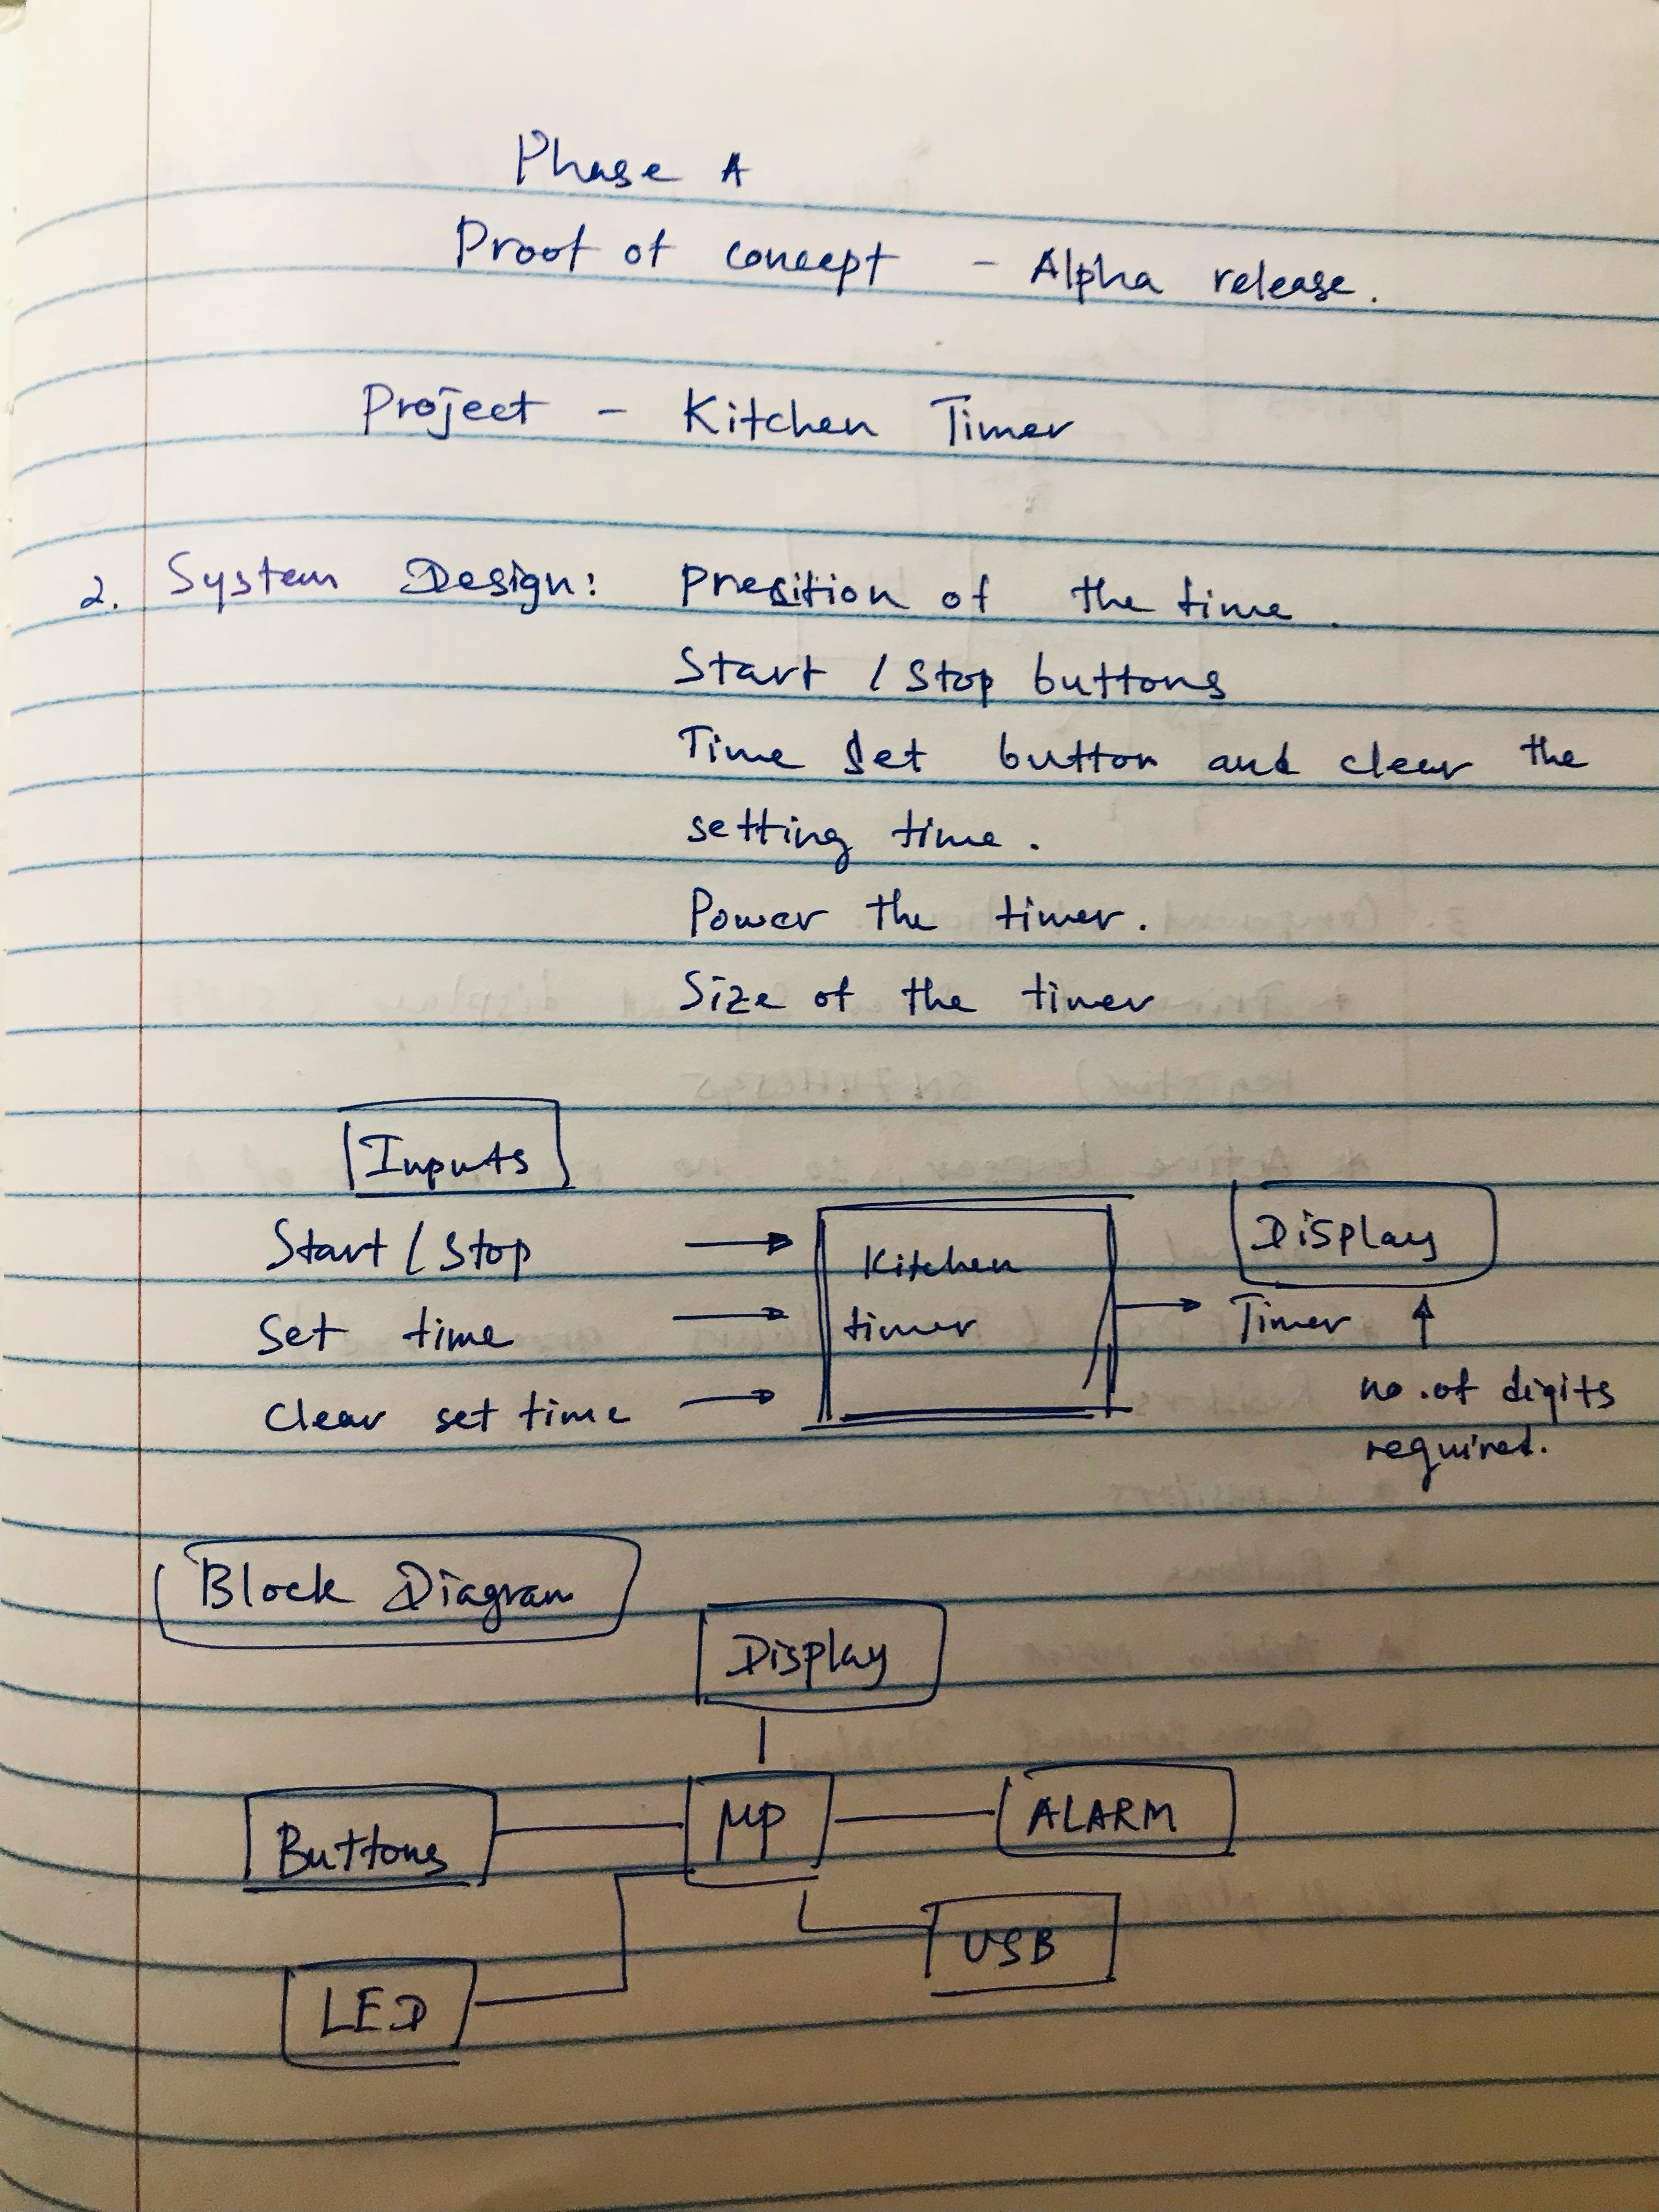 Phase A
Proof of concept - Alpha release.
Project - Kitchen Timer
2. System Design: Presition of the time.
Start / Stop buttons
Time Set button and clear the
setting time.
Power the timer.
Size of the timer
Inputs
Start / Stop
Set time
Clear set time
Kitchen
timer
Display
Timer
no. of digits
required.
Block Diagram
Display
Buttons
μP
ALARM
USB
LED